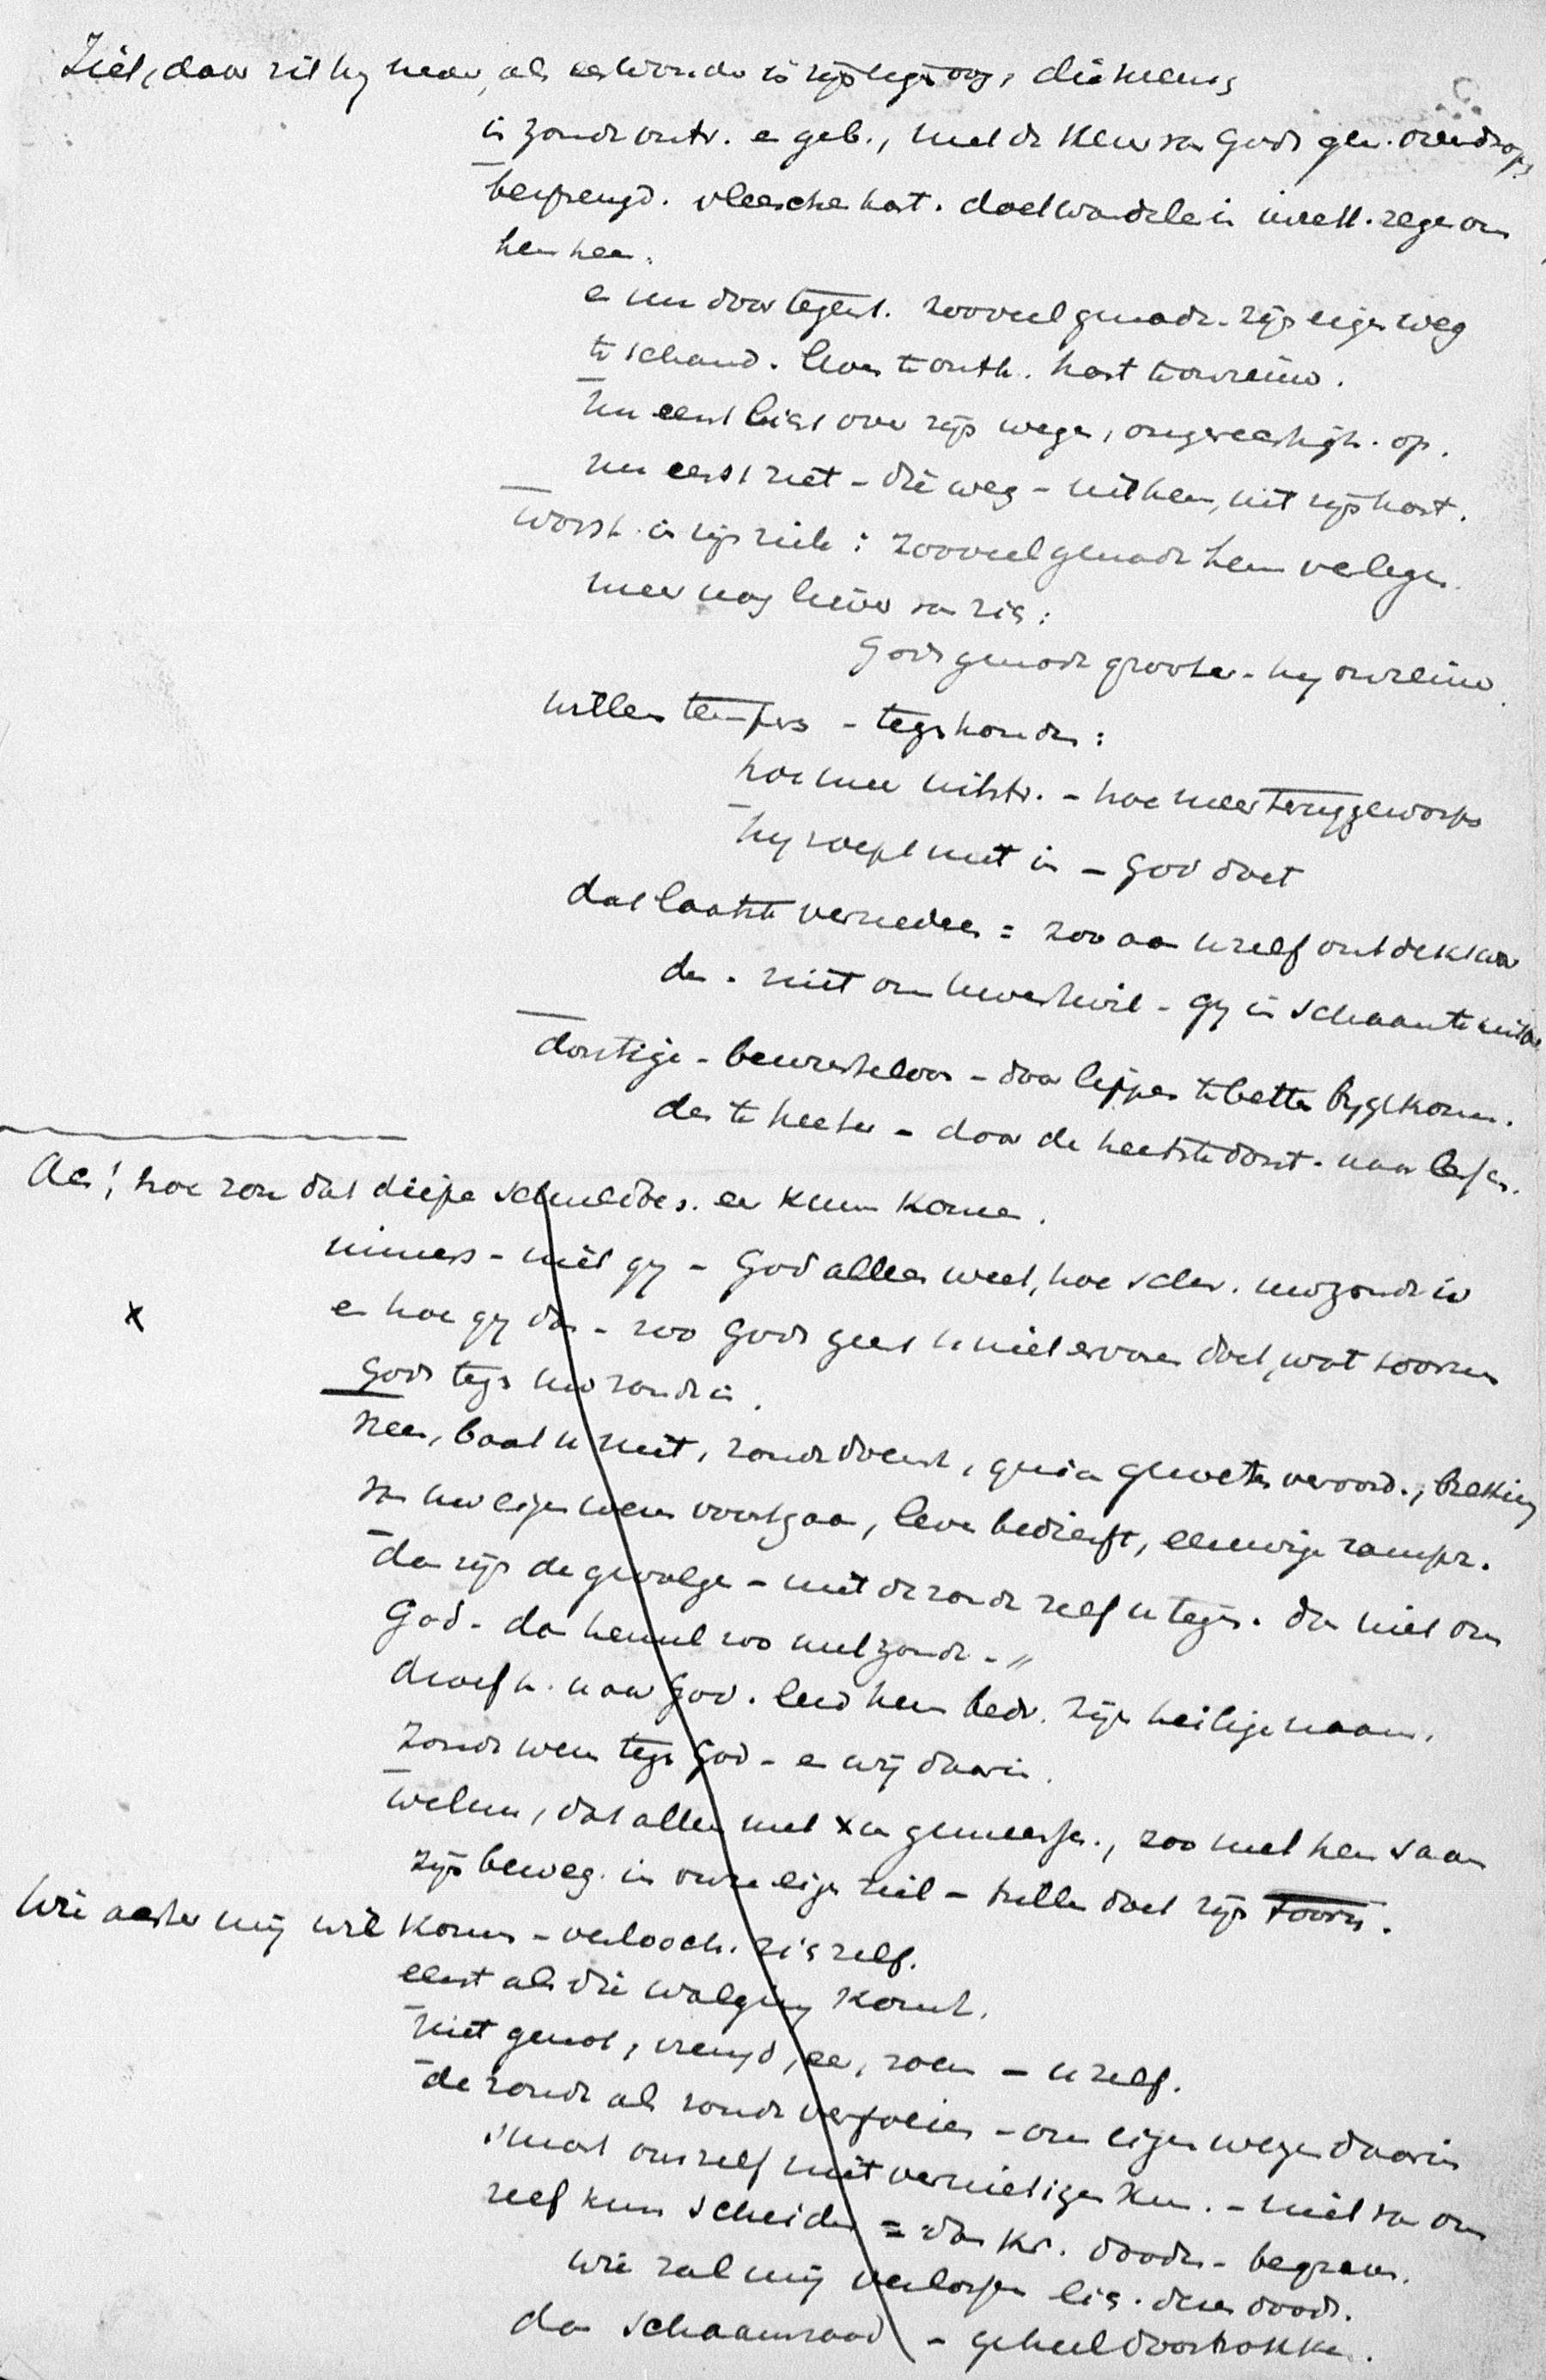 Ziet, daar zit hy neer, als een wonder in zijn eigen oog, die mensch
in zonde ontv. en geb., met de van Gods gen.
besprengd. vleesche hart. doet wandelen in inzett. zegen om
hem heen.
en nu daar tegenst. zooveel genade. zijn eigen weg
te schand. leven te onth. hart te onreine.
nu eerst licht over zijn wegen, ongerechtigh. op.
nu eerst ziet - die weg - uit hem, uit zijn hart.
worst. in zijn ziele: zooveel genade hem verlegen.
meer nog lieve van zich:
Gods genade grooter - hy onreine
uitlem - tegenhouden:
hoe meer uitstr. - hoe meer teruggeworpen
hy roept niet in - God doet
dat laatste vernederen = zoo aan uzelf ontdekt
den. niet om uwentwil - gy in schaamte
dorstige - bewusteloos - daar lippen te betten bygekomen.
des te heeter - daar de heetste dorst. naar lessen.
Ach! hoe zou dat diepe schuldbes. er kunn komen.
immers - niet gy - God alleen weet, hoe schr. uw zonde is
en hoe gy dan - zoo Gods geest u niet ervaren doet, wat toorn
Gods tegen uw zonde is.
x
Neen, baat u niet, zonde doemt, gy in geweten veroord., breking
van uw eigen wezen voortgaan, leven bederft, eeuwige rampz.
dan zijn de gevolgen - niet de zonde zelf u tegen. dan niet om
God - dan hemel zoo met zonde - "
droefh. naar God. leed hem bedr. zijn heilige naam.
zonde wezen tegen God - en wij daarin.
welnu, dat alleen met x in gemeensch., zoo met hem saam
zijn beweg. in onze eigen ziel - trillen doet zijn toorn.
Wie achter mij wil komen - verlooch. zichzelf.
eerst als die walging komt.
niet genot, vreugd, eer, roem - uzelf.
de zonde als zonde verfoeien - om eigen wezen daarin
smart onszelf niet vernietigen kun. - niet van ons
zelf kunn scheiden = dan kr. dooden - begraven.
wie zal mij verlossen lich. dezes doods.
dan schaamrood - geheel doortrokken.